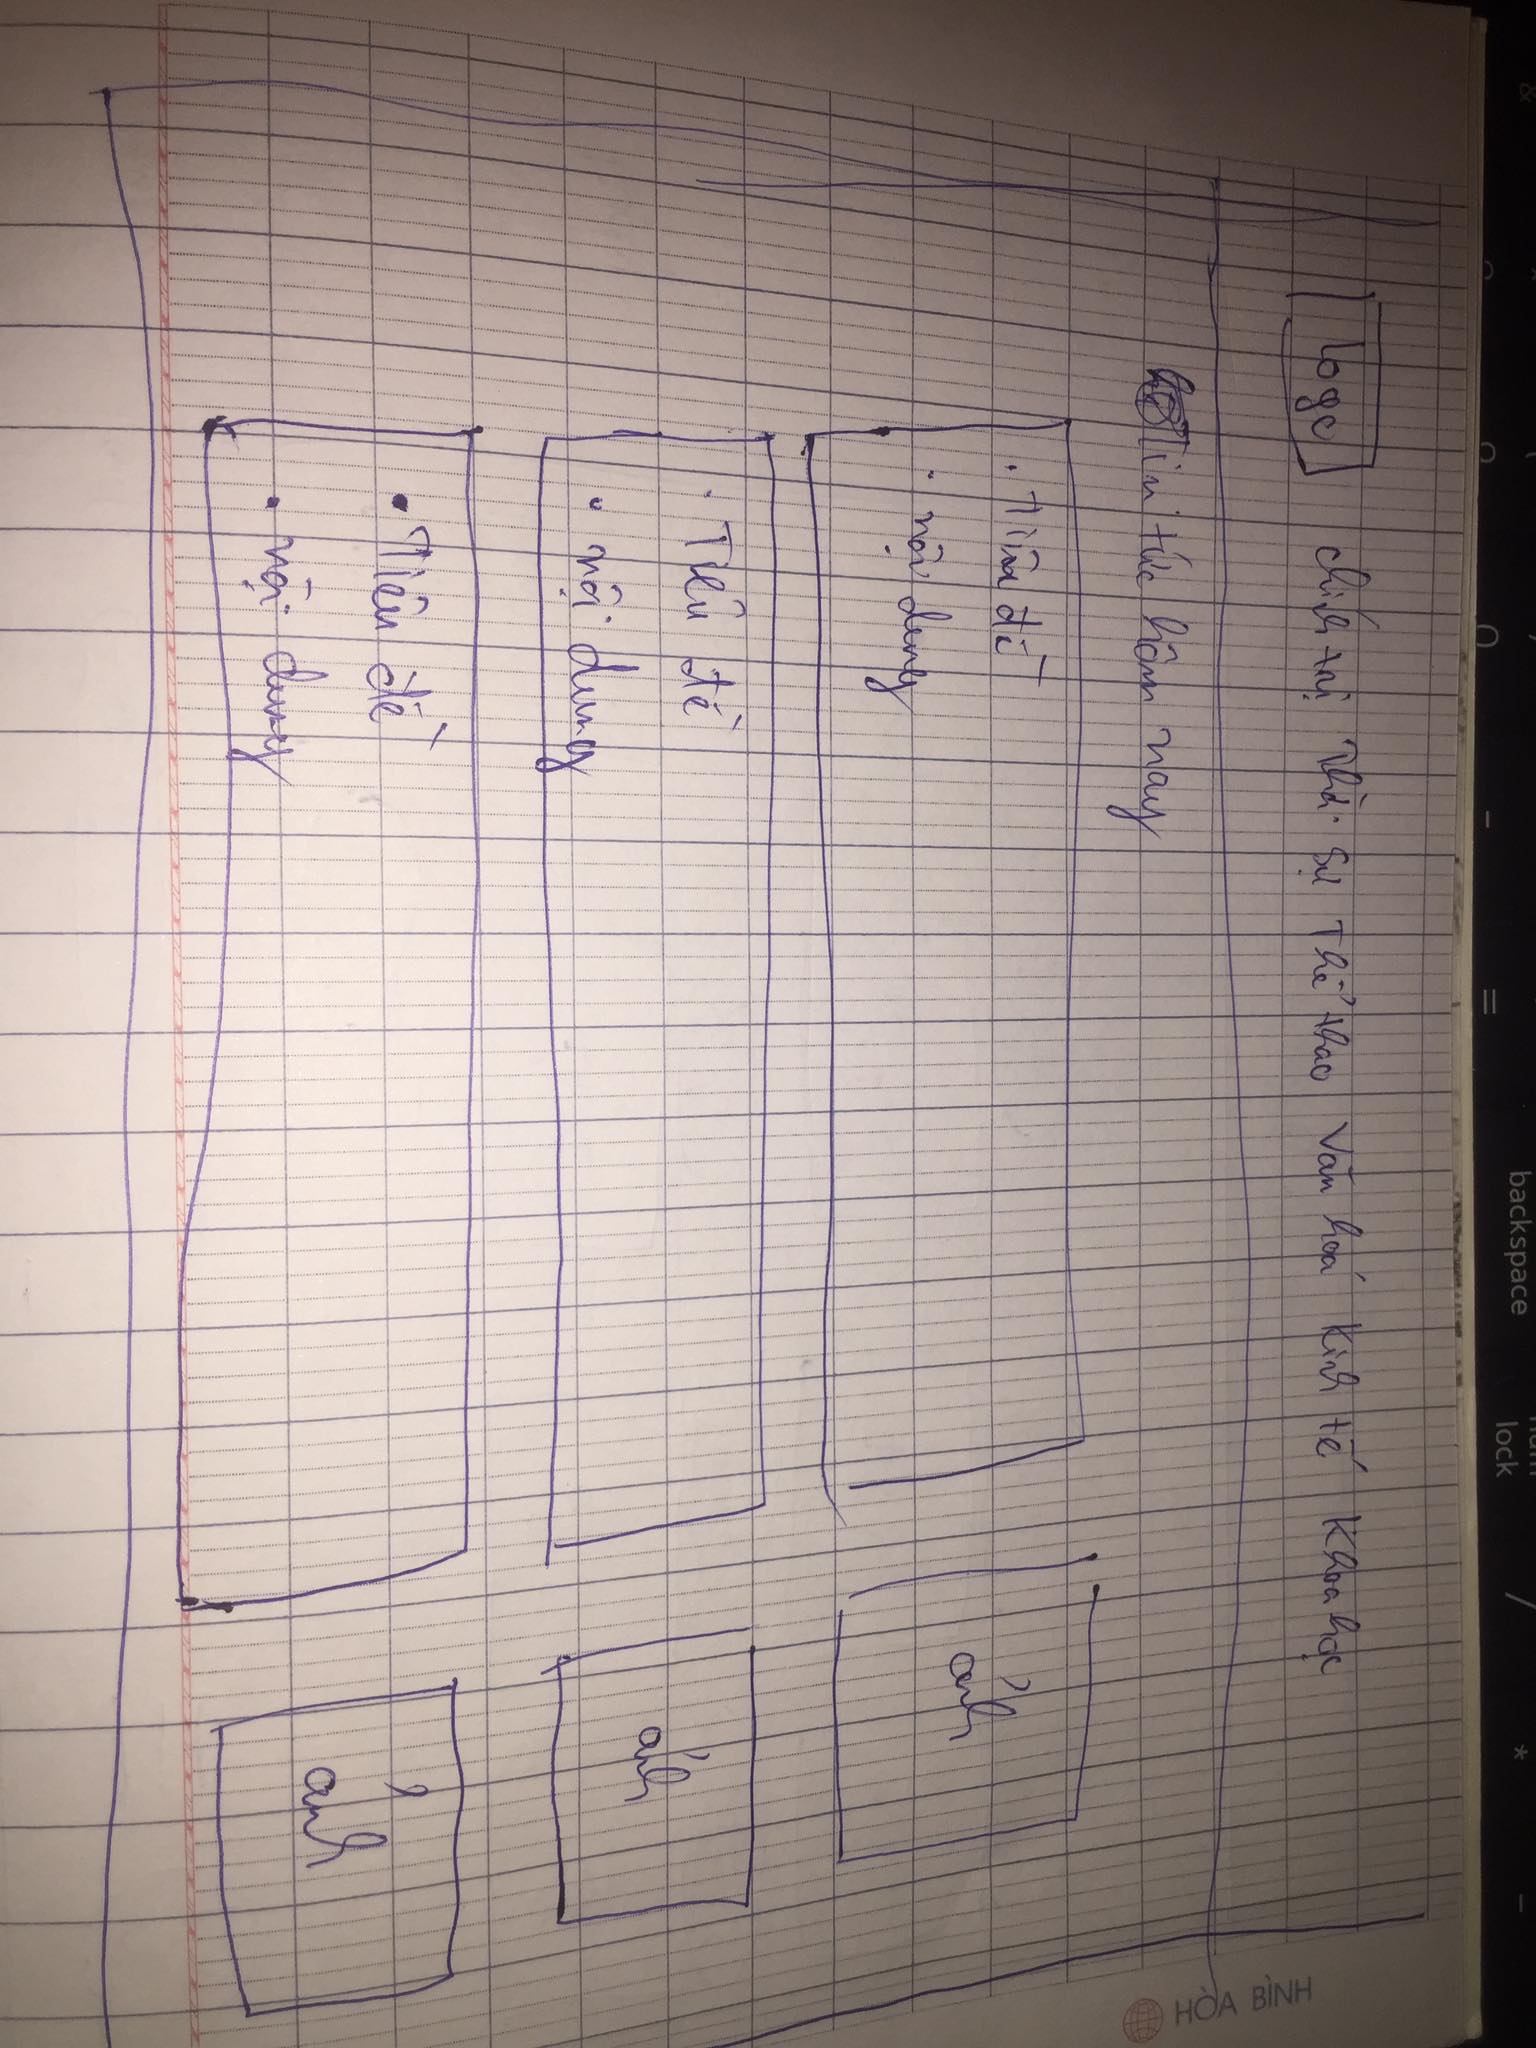 backspace
num lock
Logo Chính trị Thời sự Thể thao Văn hoá Kinh tế Khoa học
HÒA BÌNH
Tin tức hôm nay
• Tiêu đề
• nội dung
ảnh
• Tiêu đề
• nội dung
ảnh
• Tiêu đề
• nội dung
ảnh